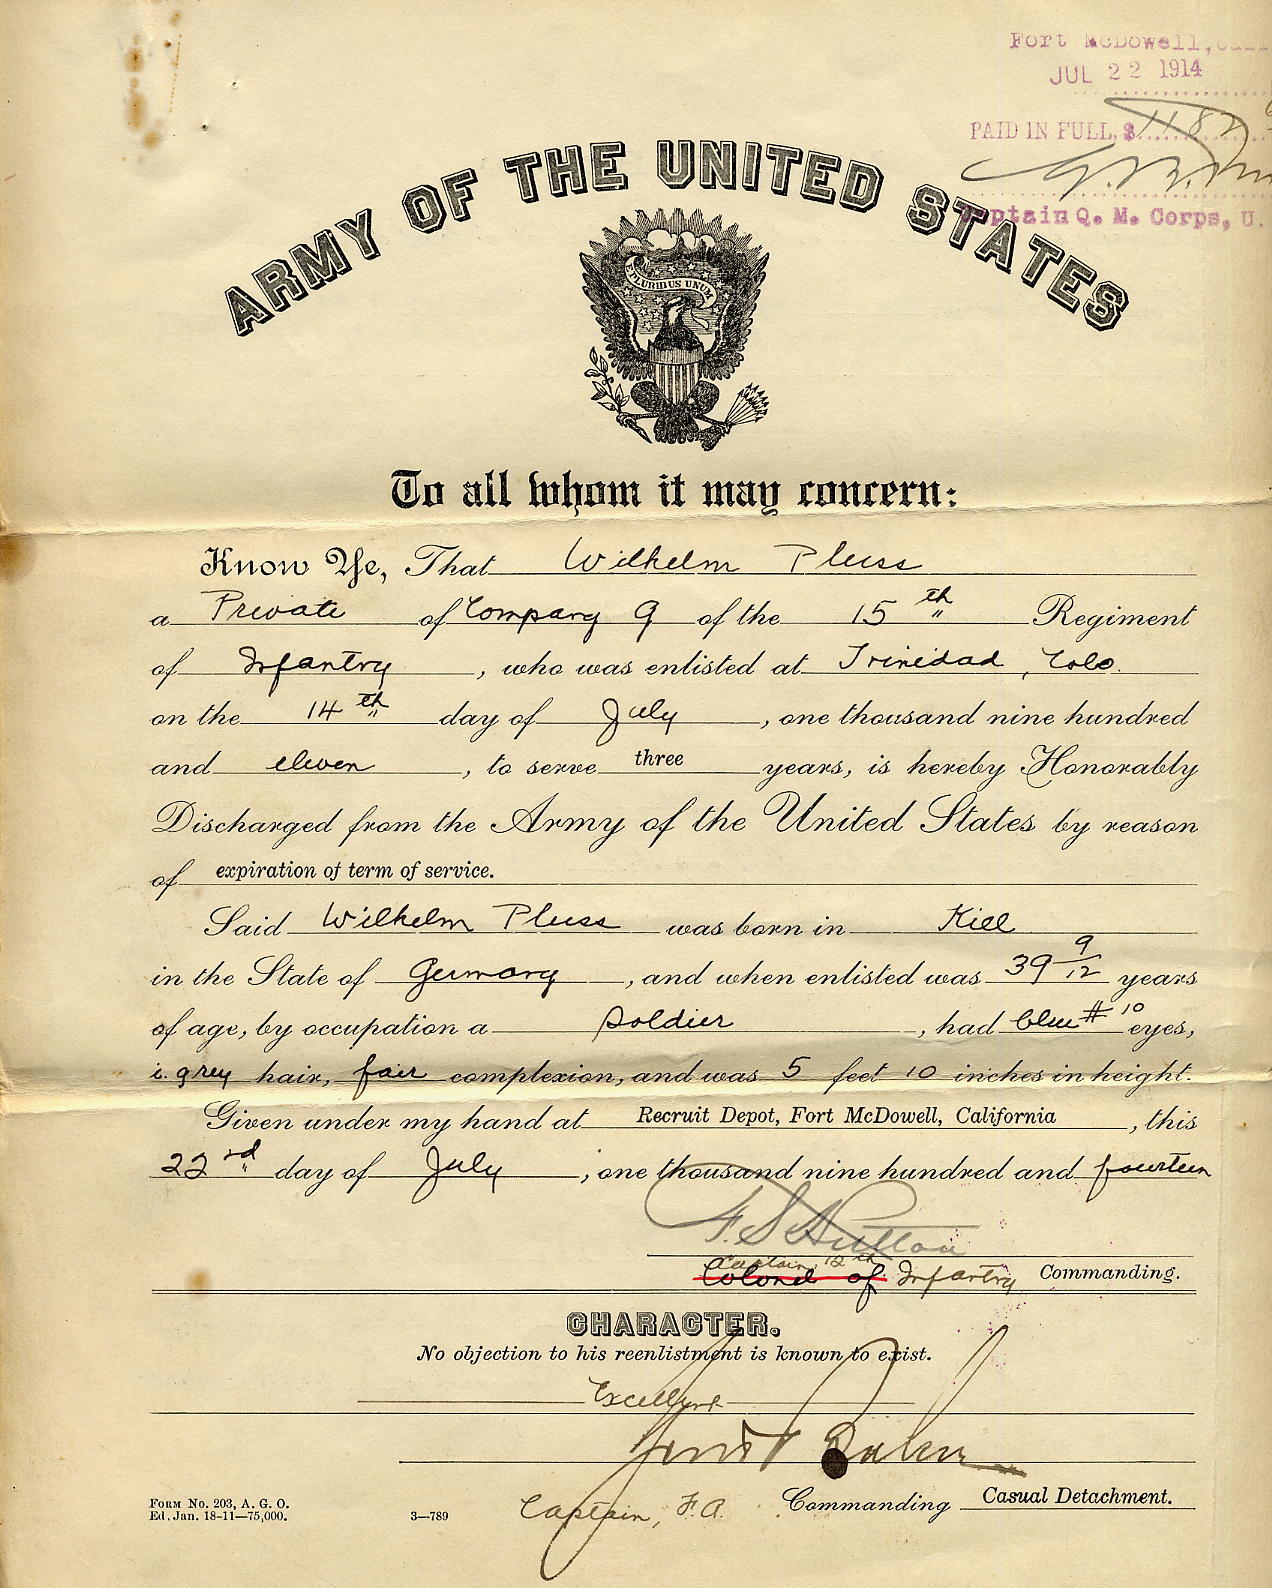 Fort McDowell, Cali
JUL 22 1914
PAID IN FULL, $ 1182
Captain Q. M. Corps, U.
ARMY OF THE UNITED STATES
E PLURIBUS UNUM
To all whom it may concern:
Know Ye, That Wilhelm Pluss
a Private of Company G of the 15th Regiment
of Infantry, who was enlisted at Trinidad, Colo.
on the 14th day of July, one thousand nine hundred
and eleven, to serve three years, is hereby Honorably
Discharged from the Army of the United States by reason
of expiration of term of service.
Said Wilhelm Pluss was born in Kiel
in the State of Germany, and when enlisted was 39 9/12 years
of age, by occupation a soldier, had blue #10 eyes,
i. grey hair, fair complexion, and was 5 feet 10 inches in height.
Given under my hand at Recruit Depot, Fort McDowell, California, this
22nd day of July, one thousand nine hundred and fourteen
Captain 12th
Colonel of Infantry Commanding.
CHARACTER.
No objection to his reenlistment is known to exist.
Excellent
Captain, F.A. Commanding Casual Detachment.
Form No. 203, A. G. O.
Ed. Jan. 18-11—75,000.
3—789